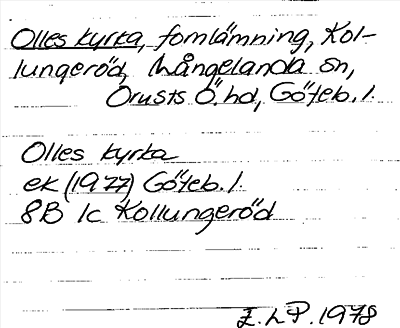 Olles kyrka, fornlämning, Kol-
lungeröd, Långelanda sn,
Orusts Ö. hd, Göteb. l.
Olles kyrka
ek (1977) Göteb. l.
8B 1c Kollungeröd
E. L P. 1978